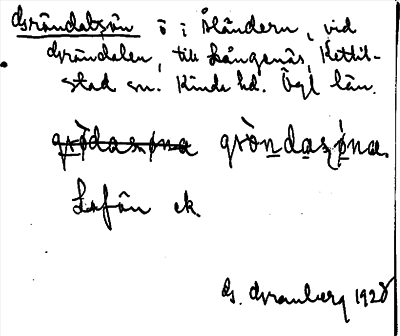 Gröndalsön ö i Åländern, vid
Gröndalen, till Långenäs, Kettil-
stad sn. Kinda hd. Ögl län.
grödasøna gröndasøna.
ek
G. Granberg 1928